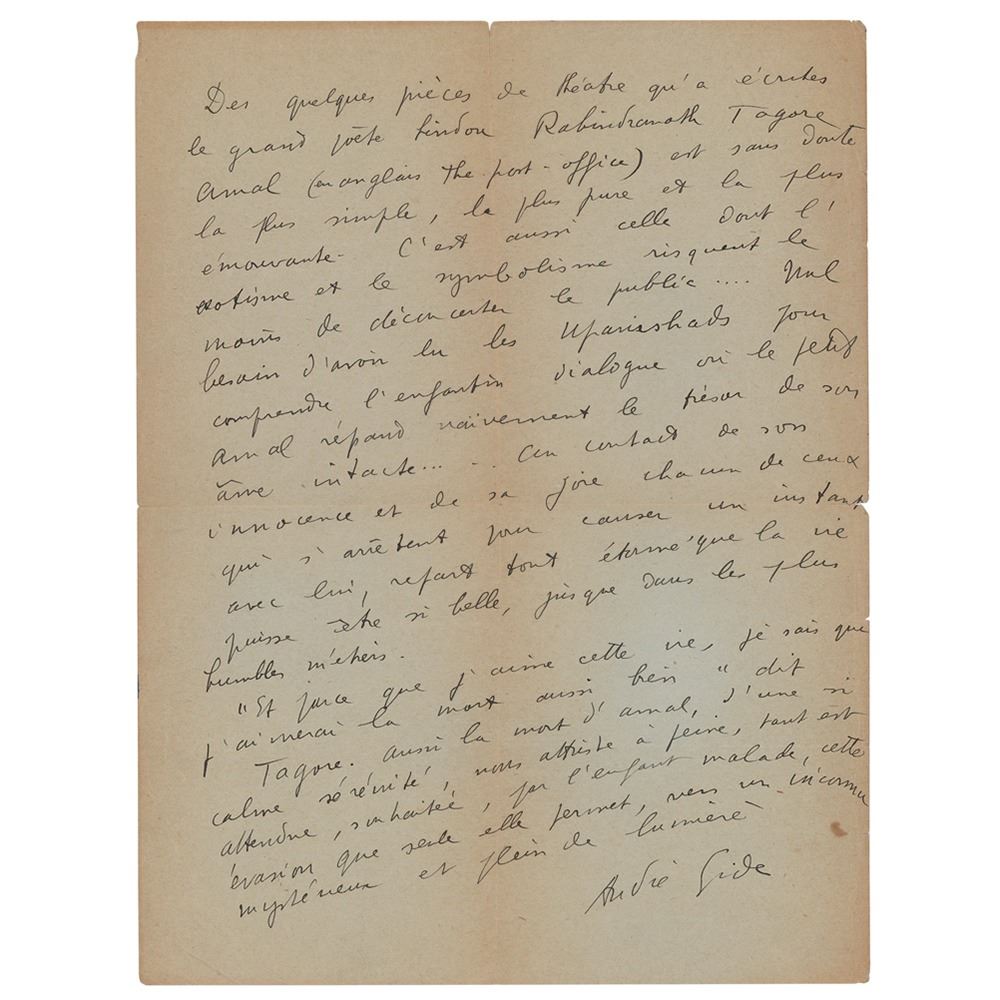 Des quelques pièces de théatre qu'a écrites
le grand poète hindou Rabindranath Tagore
Amal (en anglais the post-office) est sans doute
la plus simple, la plus pure et la plus
émouvante. C'est aussi celle dont l'
exotisme et le symbolisme risquent le
moins de déconcerter le public.... Nul
besoin d'avoir lu les Upanishads pour
comprendre l'enfantin dialogue où le petit
Amal répand naïvement le trésor de son
âme intacte... .. Au contact de son
innocence et de sa joie chacun de ceux
qui s'arrêtent pour causer un instant
avec lui, repart tout étonné que la vie
puisse être si belle, jusque dans les plus
humbles métiers.
"Et parce que j'aime cette vie, je sais que
j'aimerai la mort aussi bien" dit
Tagore. aussi la mort d'amal, d'une si
calme sérénité, nous attriste à peine, tant est
attendue, souhaitée, par l'enfant malade, cette
évasion que seule elle permet, vers un inconnu
mystérieux et plein de lumière
André Gide